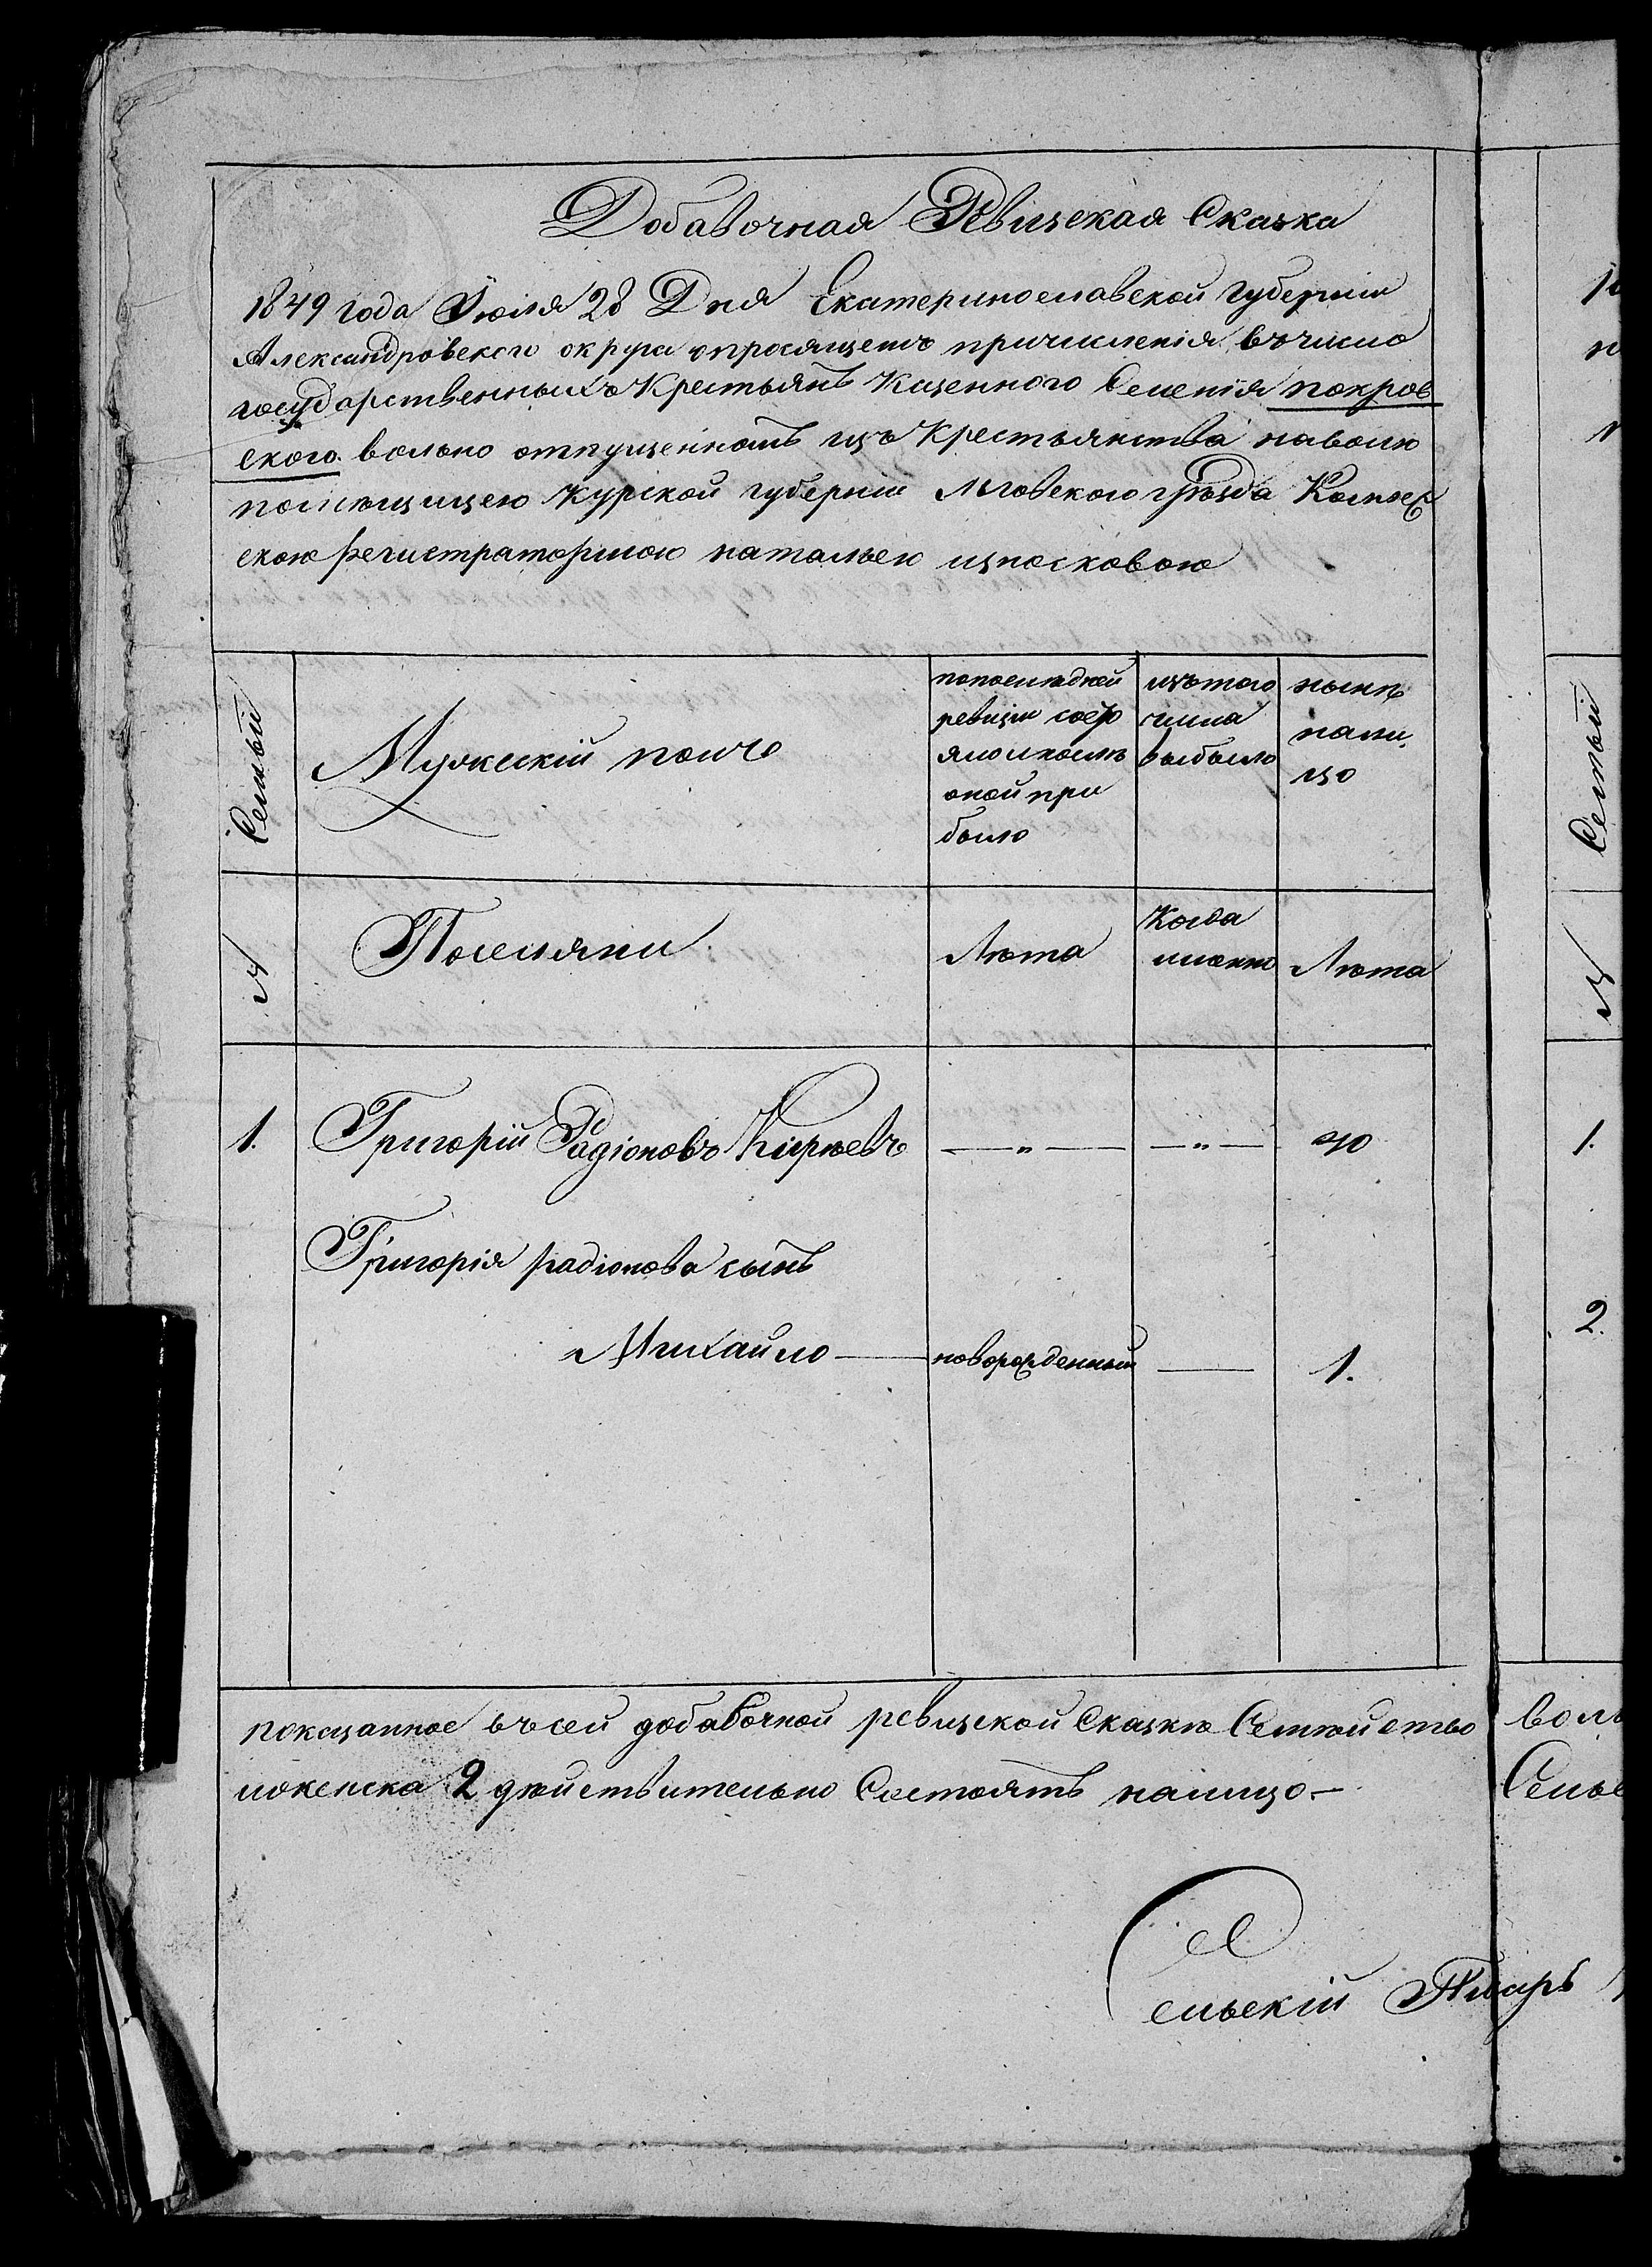 Добавочная Ревизская Сказка
1849 года Июля 28 Дня Екатеринославской губернии
Александровского округа опросящемъ причисленія въ число
государственныхъ Крестьянъ Казенного Селенія покров
ского вольно отпущенномъ изъ Крестьянства наволю
помѣщицею Курской губерніи Льговского уѣзда Коллеж
скою регистраторшою натальею
Семьи
Мужескій полъ
попослѣдней
ревизіи состо
яло и послѣ
оной при
было
изътого
числа
выбыло
нынѣ
нали
цо
№
Поселяни
Лѣта
Когда
именно
Лѣта
1. Григорій Радіоновъ Кирѣевъ —„— —„— 40
Григорія радіонова сынъ
Михайло — новорожденный — 1.
показанное въсей добавочной ревизской Сказкѣ Семѣйство
2 дѣйствительно Состоятъ налицо –
Сельскій Писарь
Семьи
№
1.
2.